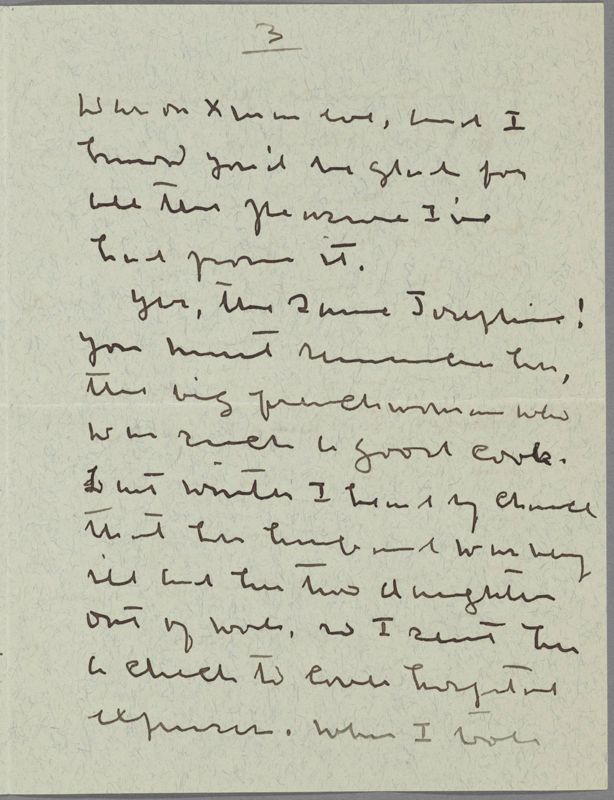 3
was on Xmas eve, and I
know you'd be glad for
all the pleasure I've
had from it.
Yes, the same Josephine!
You must remember her,
the big frenchwoman who
was such a good cook.
Last winter I heard by chance
that her husband was very
ill and her two daughters
out of work, so I sent her
a check to cover hospital
expenses. When I took